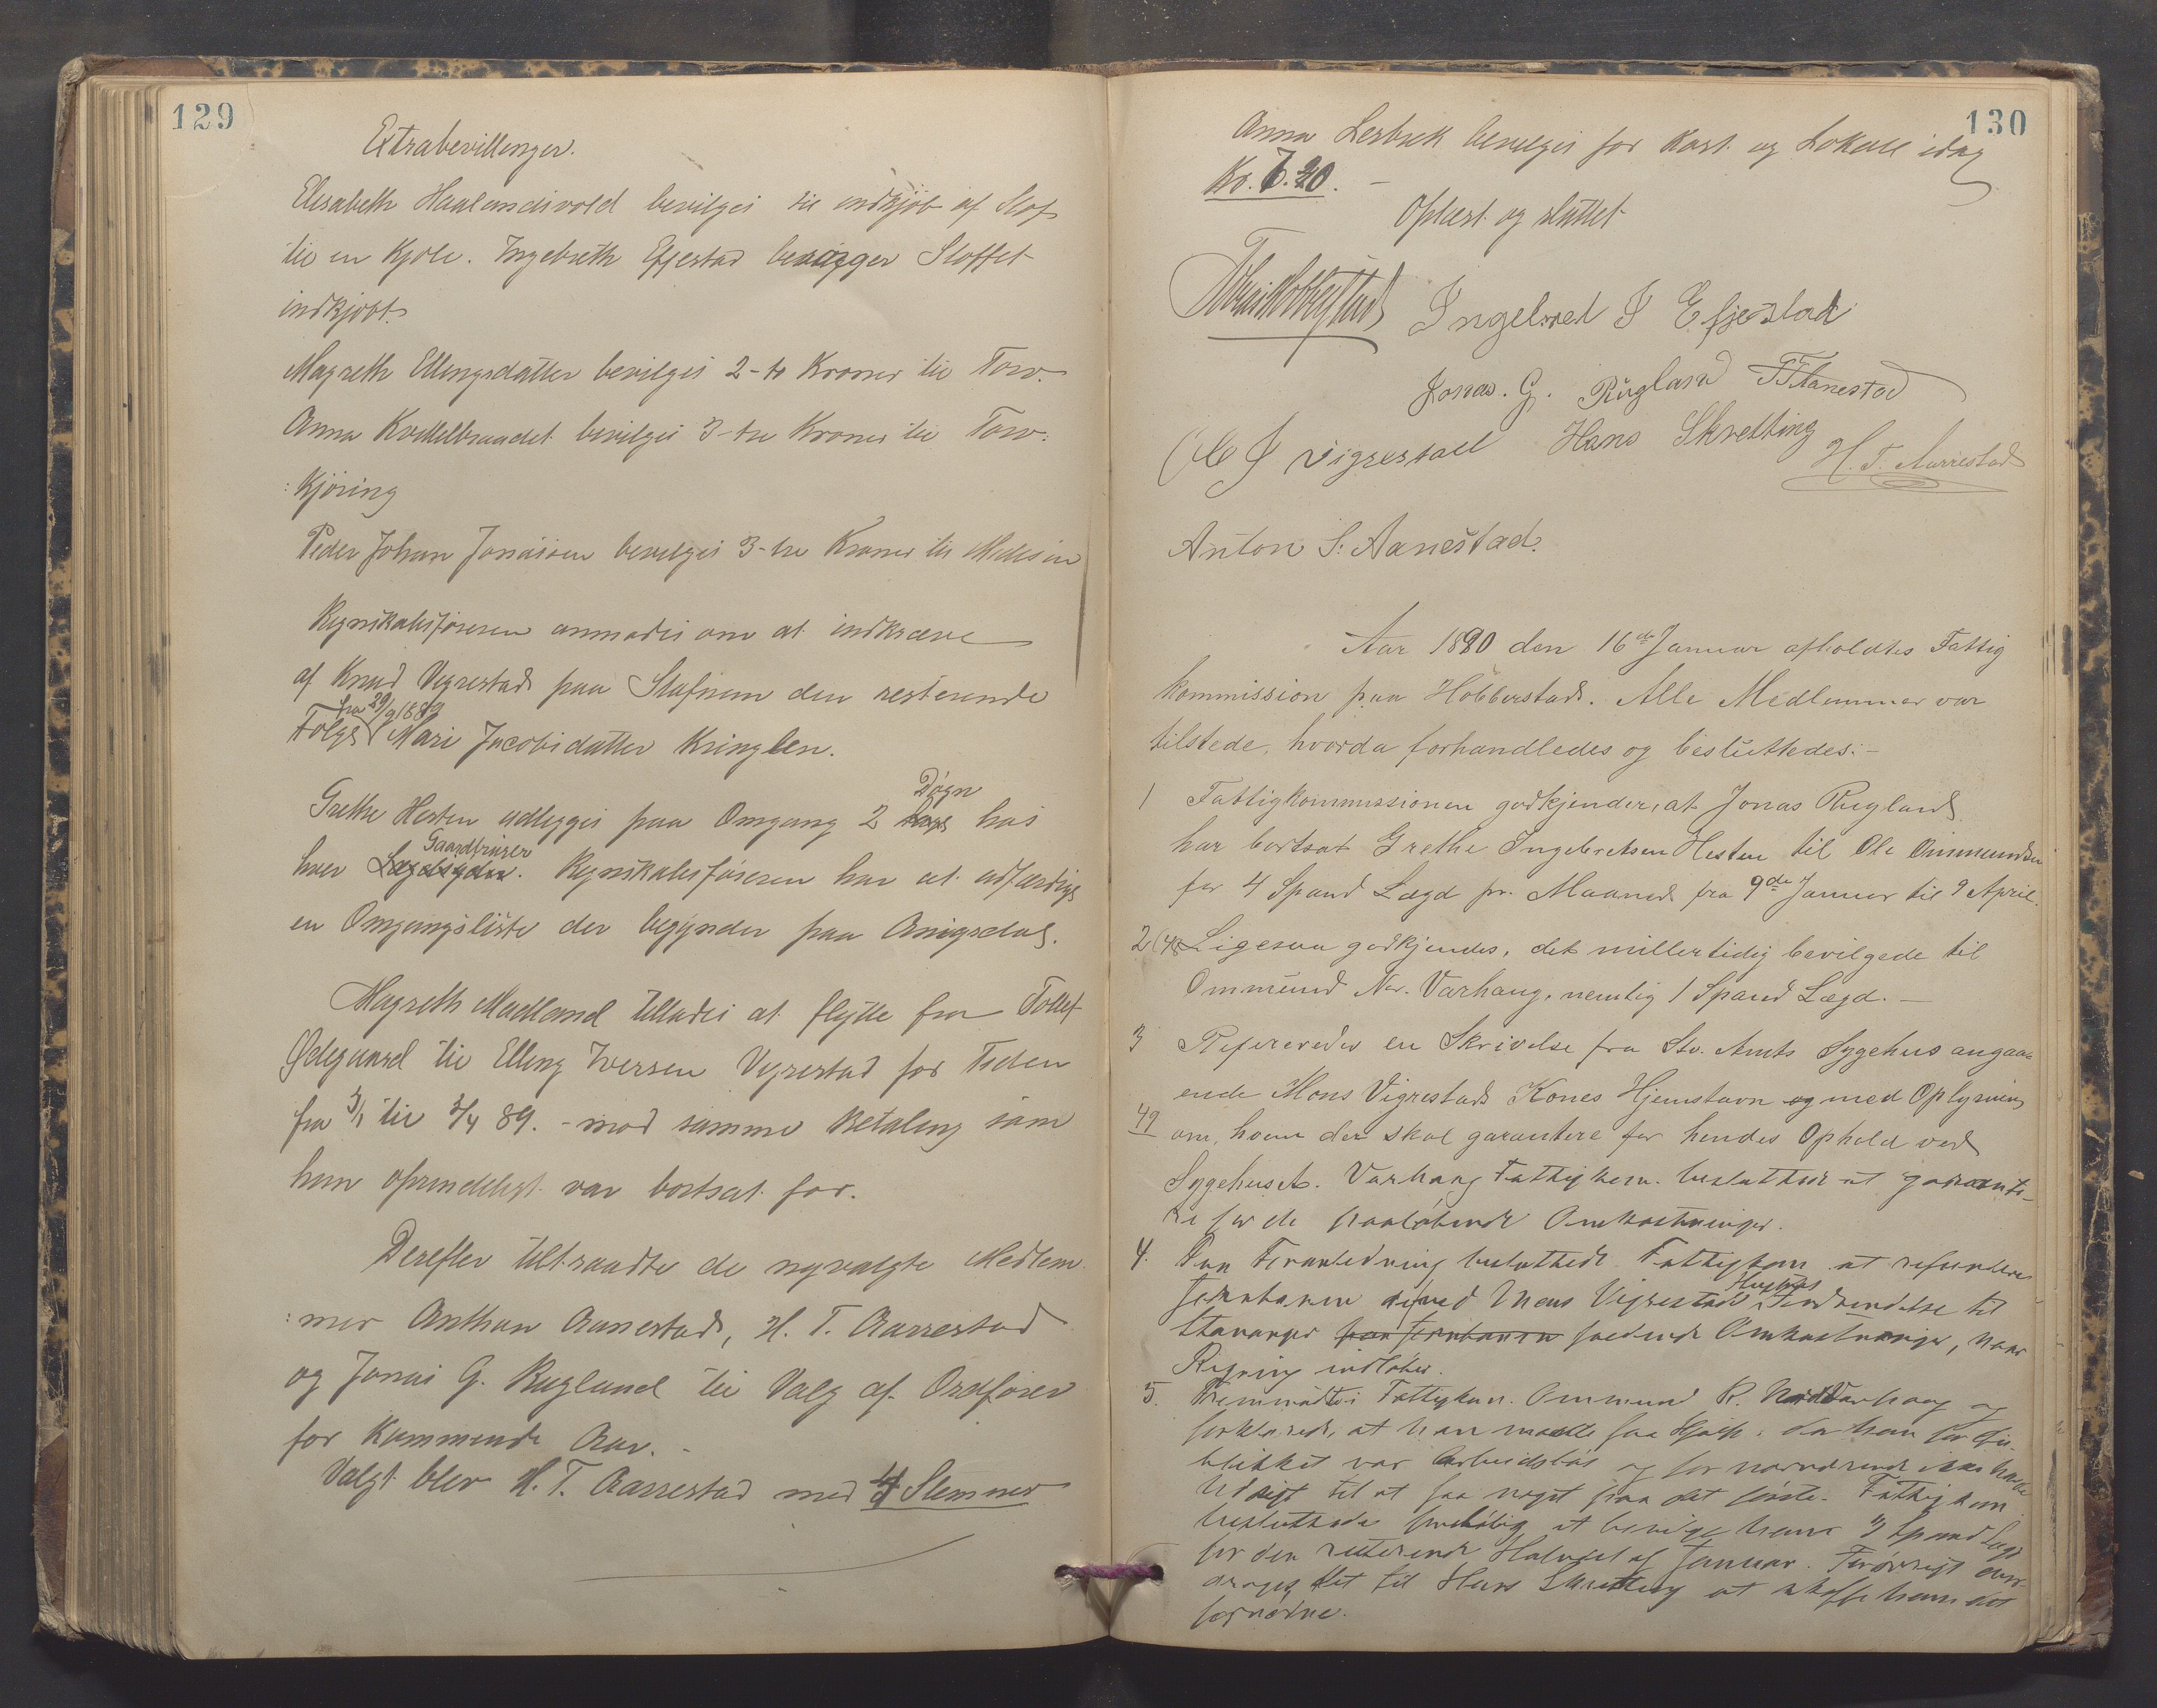 129
Extrabevillinger.
Elisabeth Haalandsvold bevilges til indkjöb af Stof
til en Kjole. Ingebreth Efjestad besörger Stoffet
indkjöbt.
Magreth Ellingsdatter bevilges 2-to Kroner til Torv.
Anna Kvellebrandet bevilges 3-tre Kroner til Torv:
:kjöring
Peder Johan Jonassen bevilges 3-tre Kroner til Medisin
Regnskabsföreren anmodes om at indkræve
af Knud Vigrestad paa Stafnem den resterende
fra 29/9 1883
Folge Mari Jacobsdatter Kringlen.
Dögn
Grethe Hesten udlegges paa Omgang 2 hos
Gaardbruger
hver Lægdsyder. Regnskabsföreren har at udfærdige
en Omgangsliste der begynder paa Aniqsdal.
Magreth Madland tillades at flytte fra Tollef
Ødegaard til Elling Iversen Vigrestad for Tiden
fra 3/1 til 3/4 89. - mod samme Betaling som
hun oprindeligt var bortsat for.
Derefter tiltraadte de nyvalgte Medlem
:mer Anthon Aanestad, H. T. Aarrestad
og Jonas G. Rugland til Valg af Ordförer
for Kommende Aar. -
Valgt blev H. T. Aarrestad med 4 Stemmer
130
Anna Lerbrek bevilges for Kost og Lokale idag
Kr. 7.20. -
Oplæst og sluttet
Ingebret I Efjestad
Jonas. G. Rugland T T Aanestad
Ole J Vigrestad Hans Skretting H. T. Aarrestad
Anton S. Aanestad.
Aar 1890 den 16de Januar afholdtes Fattig
kommission paa Höbberstad. Alle Medlemmer var
tilstede, hvorda forhandledes og besluttedes:-
1 Fattigkommissionen godkjender, at Jonas Rugland
har bortsat Grethe Ingebretsen Hesten til Ole Ommundsen
for 4 Spand Lægd pr. Maaned fra 9de Januar til 9 April.
2 Ligesaa godkjendes, det midlertidig bevilgede til
Ommund Nr. Varhaug, nemlig 1 Spand Lægd. -
3 Refereredes en Skrivelse fra Stv. Amts Sygehus angaa
ende Mons Vigrestads Kones Hjemstavn og med Oplysning
49 om, hvem der skal garantere for hendes Ophold ved
Sygehuset. Varhaug Fattigkom. besluttede at garante-
re for de paalöbende Omkostninger.
4. Paa Foranledning besluttede Fattigkom at refundere
Hustrus
Jernbanen ved Mons Vigrestads Indsendelse til
Stavanger paa Jernbanen Omkostninger, naar
Regning indlöber.
5. Fremmödte i Fattigkom. Ommund R. Nordvarhaug og
forklarede, at han maatte faa Hjælp, da han for Öie-
blikket var Arbeidslös og for nærværende ikke havde
Udsigt til at faa noget paa det förste. Fattigkom
besluttede forelöbig at bevilge ham 3 Spand Lægd
for den resterende Halvdel af Januar. Forövrigt over-
droges det til Hans Skretting at skaffe ham det
fornödne.